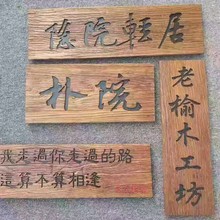 隐院輕居
朴院
老榆木工坊
我走過你走過的路
這算不算相逢